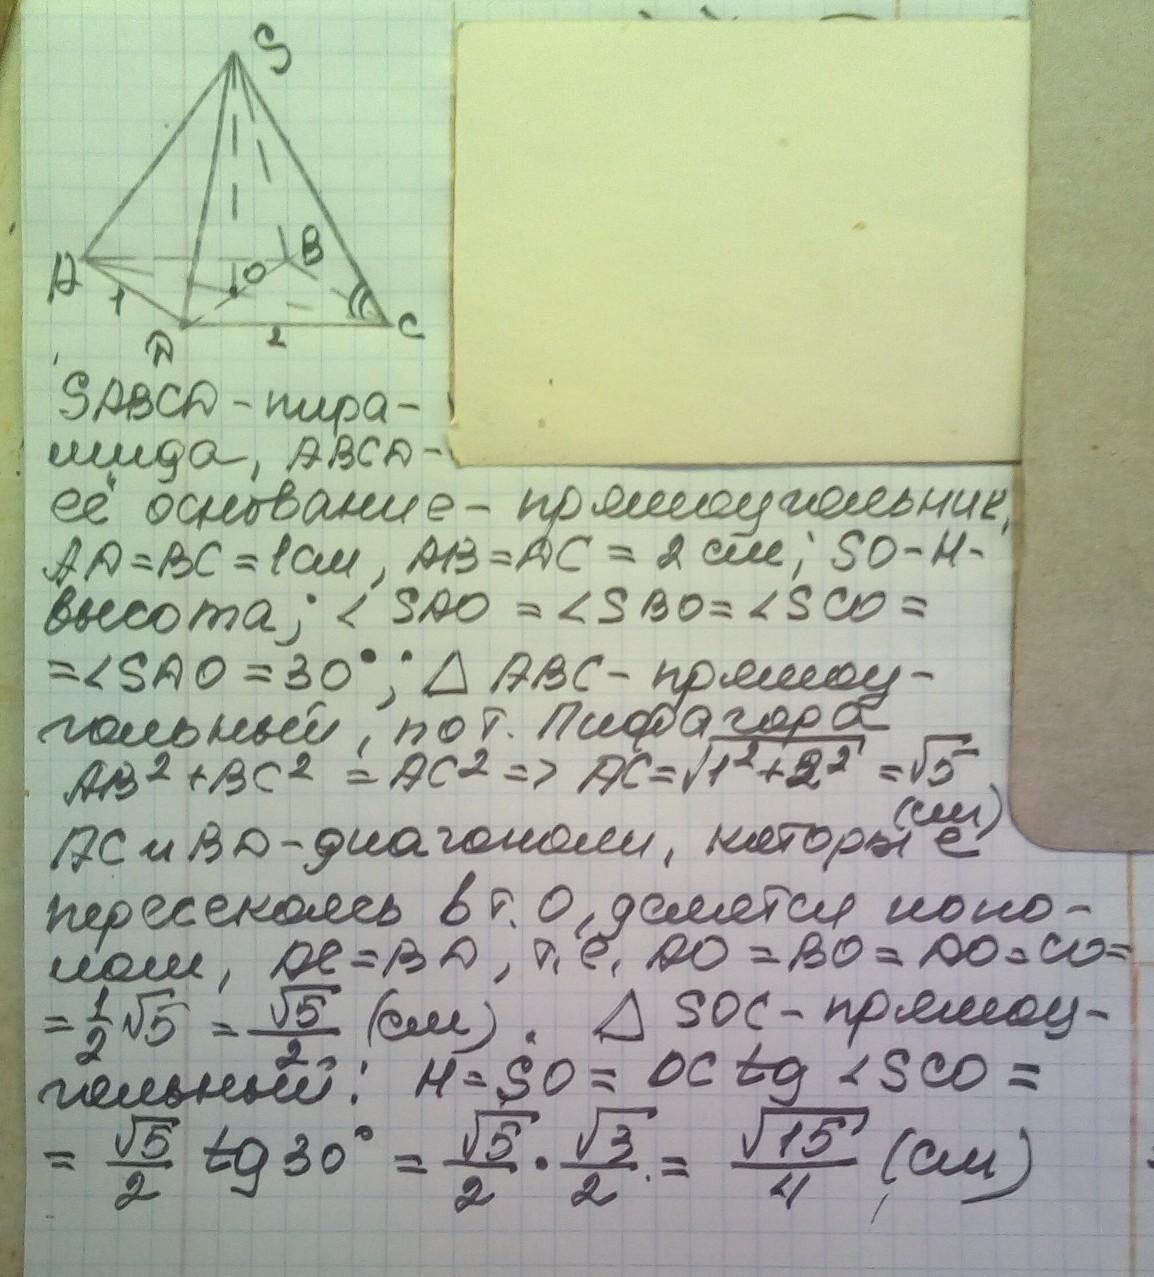 S
A
B
O
1
D
2
C
SABCD - пира-
мида, ABCD -
её основание - прямоугольник,
AD = BC = 1 см, AB = DC = 2 см; SO - H -
высота; ∠SAO = ∠SBO = ∠SCO =
= ∠SDO = 30°; △ABC - прямоу-
гольный, по т. Пифагора
AB² + BC² = AC² => AC = √(1² + 2²) = √5
(см)
AC и BD - диагонали, которые
пересекаясь в т. O, делятся попо-
лам, AC = BD, т.е. AO = BO = DO = CO =
= 1/2 √5 = √5/2 (см). △ SOC - прямоу-
гольный: H = SO = OC tg ∠SCO =
= √5/2 tg 30° = √5/2 · √3/2 = √15/4 (см)